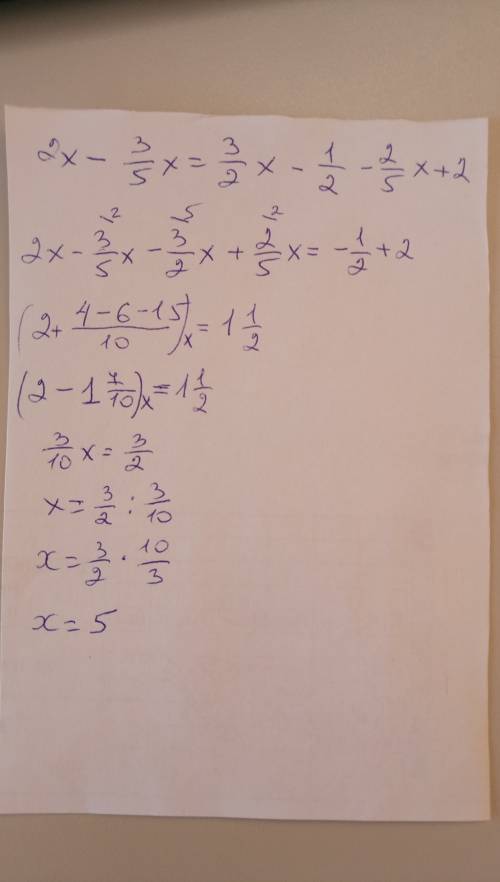 2x - 3/5 x = 3/2 x - 1/2 - 2/5 x + 2
2x - 3/5 \2 x - 3/2 \5 x + 2/5 \2 x = - 1/2 + 2
(2 + (4 - 6 - 15)/10) x = 1 1/2
(2 - 1 7/10) x = 1 1/2
3/10 x = 3/2
x = 3/2 : 3/10
x = 3/2 · 10/3
x = 5